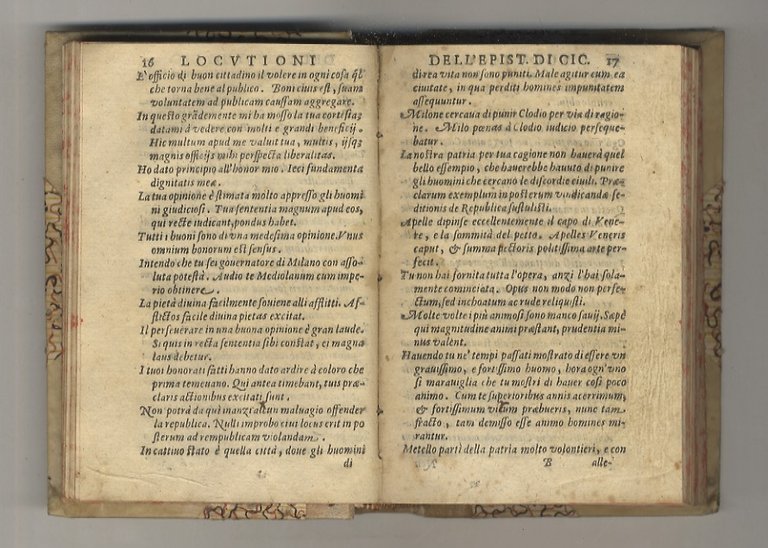 16 LOCVTIONI
E' officio di buon cittadino il volere in ogni cosa q̃l
che torna bene al publico. Boni ciuis est, suam
voluntatem ad publicam caussam aggregare.
In questo grãdemente mi ha mosso la tua cortesia
datami à vedere con molti e grandi beneficij.
Hic multum apud me valuit tua, multis, ijsq;
magnis officijs mihi perspecta liberalitas.
Ho dato principio all'honor mio. Ieci fundamenta
dignitatis meæ.
La tua opinione è stimata molto appresso gli huomi
ni giudiciosi. Tua sententia magnum apud eos,
qui recte iudicant, pondus habet.
Tutti i buoni sono di vna medesima opinione. Vnus
omnium bonorum est sensus.
Intendo che tu sei gouernatore di Milano con asso-
luta potestà. Audio te Mediolanum cum impe-
rio obtinere.
La pietà diuina facilmente souiene alli afflitti. Af-
flictos facile diuina pietas excitat.
Il perseuerare in una buona opinione è gran laude.
Si quis in recta sententia sibi constat, ei magna
laus debetur.
I tuoi honorati fatti hanno dato ardire à coloro che
prima temeuano. Qui antea timebant, tuis præ-
claris actionibus excitati sunt.
Non potrà da quì inanzi alcun maluagio offender
la republica. Nulli improbo ciui locus erit in po
sterum ad rempublicam violandam.
In cattiuo stato è quella città, doue gli huomini
di
DELL'EPIST. DI CIC. 17
di rea vita non sono puniti. Male agitur cum ea
ciuitate, in qua perditi homines impunitatem
assequuntur.
Milone cercaua di punir Clodio per via di ragio-
ne. Milo pœnas à Clodio iudicio perseque-
batur.
La nostra patria per tua cagione non hauerà quel
bello essempio, che hauerebbe hauuto di punire
gli huomini che cercano le discordie ciuili. Præ-
clarum exemplum in posterum vindicandæ se-
ditionis de Republica sustulisti.
Apelle dipinse eccellentemente il capo di Vene-
re, e la sommità del petto. Apelles Veneris
caput, & summa pectoris politissima arte per-
fecit.
Tu non hai fornita tutta l'opera, anzi l'hai sola-
mente cominciata. Opus non modo non perfe-
ctum, sed inchoatum ac rude reliquisti.
Molte volte i più animosi sono manco sauij. Sæpè
qui magnitudine animi præstant, prudentia mi-
nus valent.
Hauendo tu ne' tempi passati mostrato di essere vn
grauissimo, e fortissimo huomo, hora ogn'vno
si marauiglia che tu mostri di hauer così poco
animo. Cum te superioribus annis acerrimum,
& fortissimum virum præbueris, nunc tam
fracto, tam demisso esse animo homines mi-
rantur.
Metello partì della patria molto volontieri, e con
B alle-